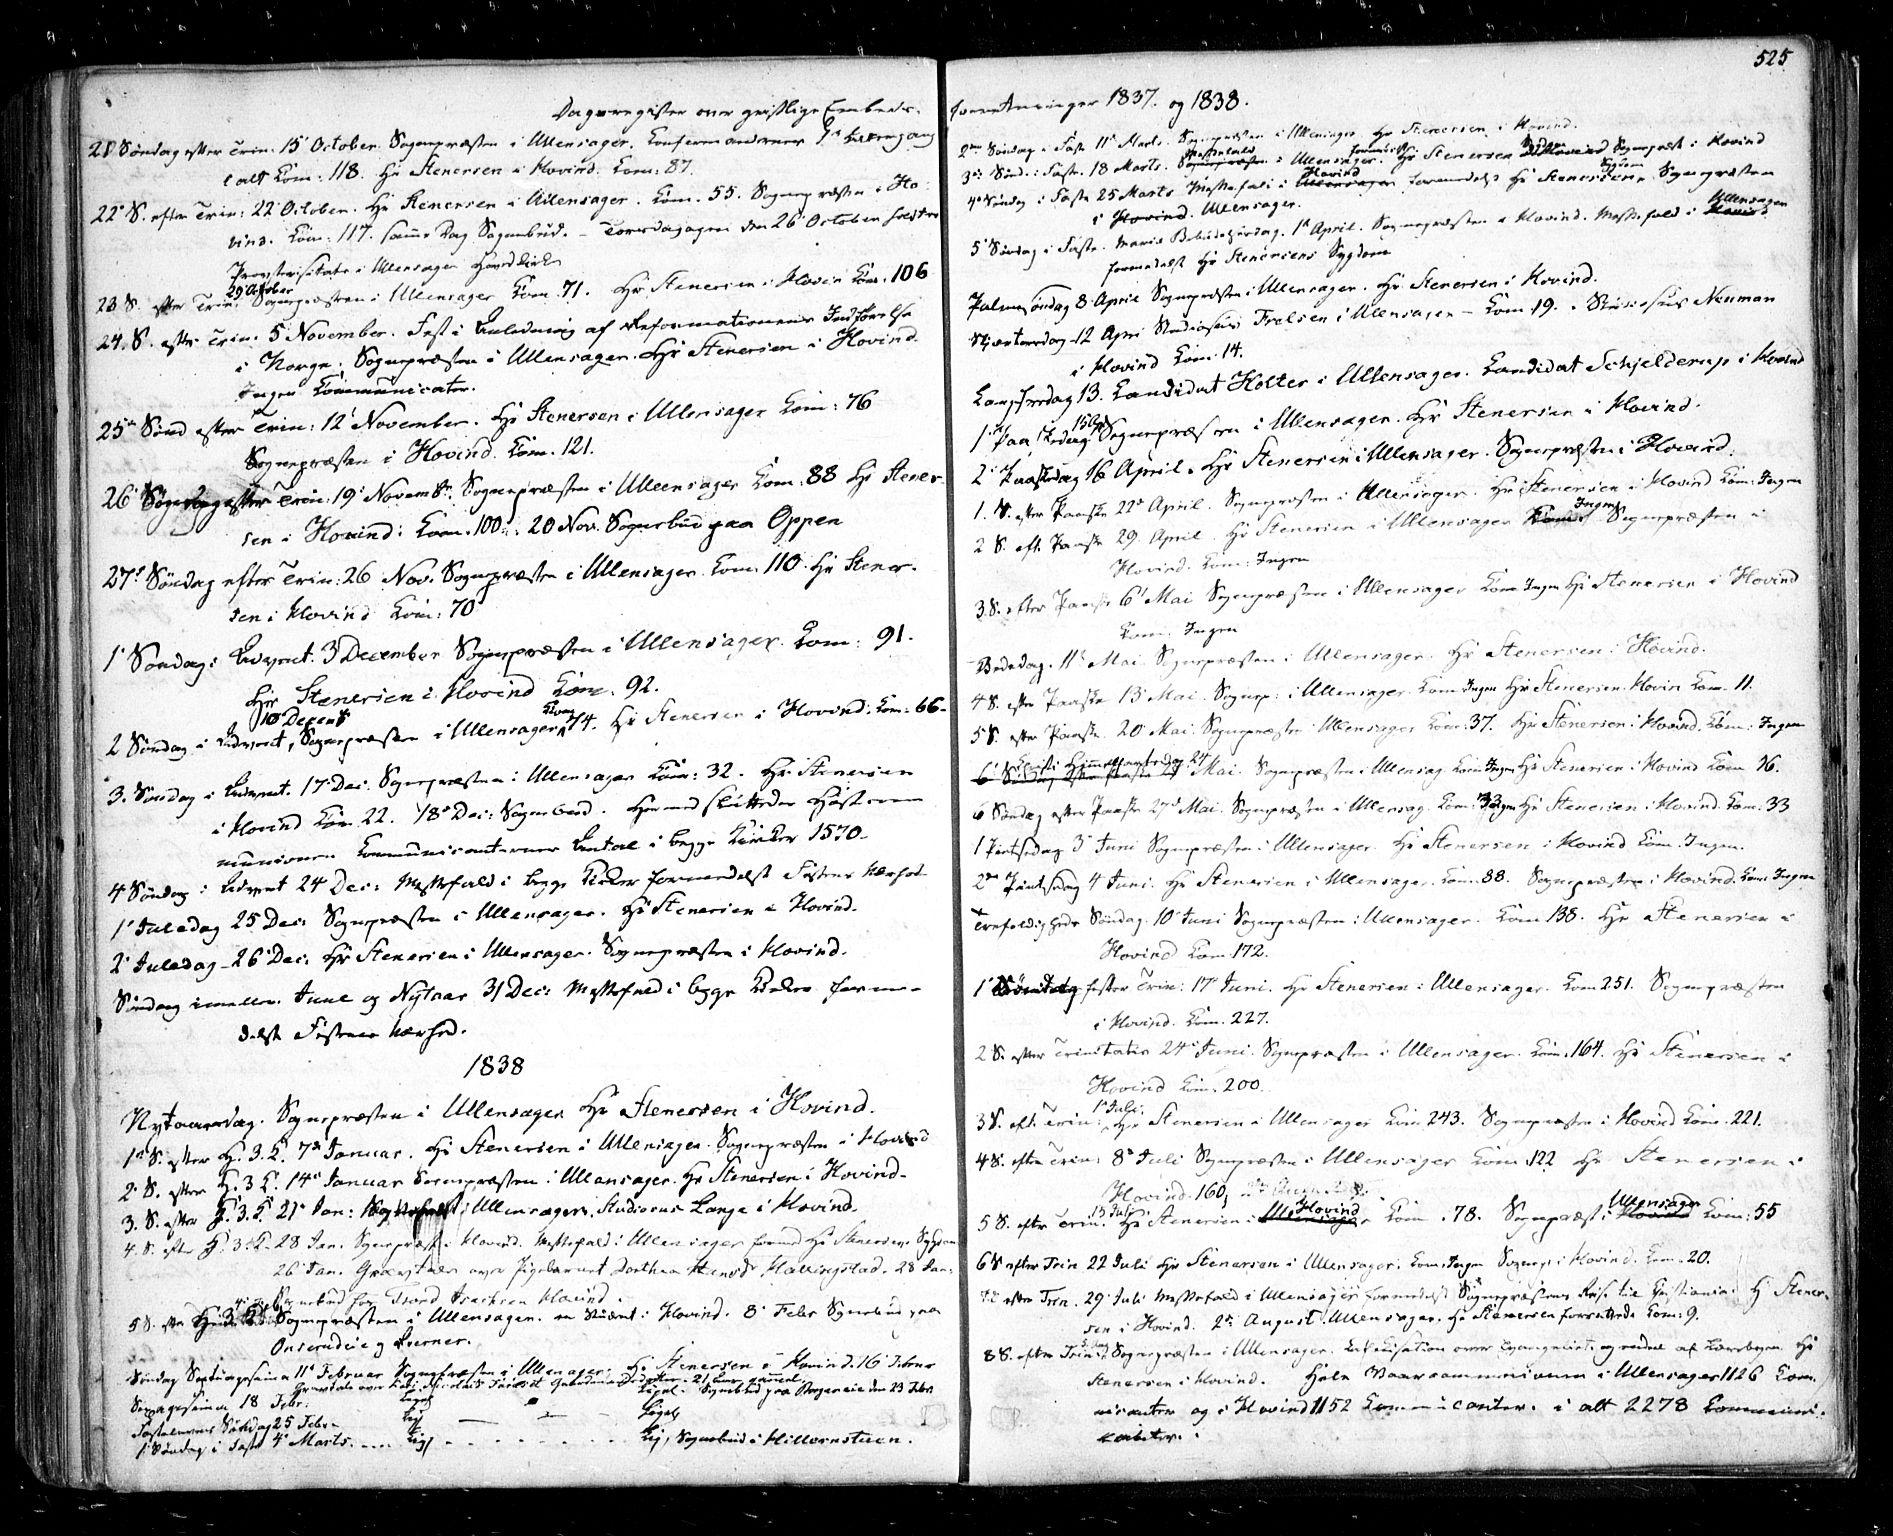 Dagsregister over geistlige Embeds-
21 Søndag efter Trin: 15 October. Sognepræsten i Ullensager. Confirmanderne 1ste Gang
i alt Kom: 118. Hr Stenersen i Hovind. Kom: 87.
22 S. efter Trin: 22 October. Hr Stenersen i Ullensager. Kom. 55. Sognepræsten i Ho-
vind. Kom: 117. samme Dag Sognebud. – Torsdagen den 26 October holdtes
Provstevisitats i Ullensager Hovedkirke
29 October
23 S. efter Trin: Sognepræsten i Ullensager Kom: 71. Hr Stenersen i Hovin Kom: 106
24. S. efter Trin: 5 November. Fest i Anledning af Reformationens Indførelse
i Norge. Sognepræsten i Ullensager. Hr Stenersen i Hovind.
Ingen Communicanter.
25 Sønd efter Trin: 12 November. Hr Stenersen i Ullensager Kom: 76
Sognepræsten i Hovind. Kom. 121.
26 Søndag efter Trin: 19 Novembr. Sognepræsten i Ullensager Kom: 88 Hr Stener-
sen i Hovind: Kom. 100. 20 Nov. Sognebud paa Oppen
27 Søndag efter Trin: 26 Nov. Sognepræsten i Ullensager. Kom. 110. Hr Stener-
sen i Hovind Kom: 70
1 Søndag i Advent. 3 December Sognepræsten i Ullensager. Kom: 91.
Hr Stenersen i Hovind Kom: 92.
10 Decembr
2 Søndag i Advent, Sognepræsten i Ullensager Kom 74. Hr Stenersen i Hovind. Kom: 66-
3. Søndag i Advent. 17 Dec. Sognepræsten i Ullensager Kom: 32. Hr Stenersen
i Hovind Kom 22. 18 Dec: Sognebud. Hermed sluttedes Høstcom
munionen Communicanternes Antal i begge Kirker 1570-
4 Søndag i Advent 24 Dec: Messefald i begge Kirker formedelst Festens Nærhed
1 Juledag 25 Dec: Sognepræsten i Ullensager. Hr Stenersen i Hovind.
2 Juledag - 26 Dec: Hr Stenersen i Ullensager. Sognepræsten i Hovind.
Søndag imellem Juul og Nytaar 31 Dec: Messefald i begge Kirker forme-
delst Festens Nærhed.
1838
Nytaarsdag. Sognepræsten i Ullensager Hr Stenersen i Hovind.
1 S. efter H. 3. K. 7 Januar. Hr Stenersen i Ullensager. Sognepræsten i Hovind
2 S. efter H. 3 K. 14 Januar Sognepræsten i Ullensager. Hr Stenersen i Hovind-
3. S. efter H. 3. K. 21 Jan: Messefald i Ullensager, Studiosus Lange i Hovind.
4. S. efter H. 3. K. 28 Jan. Sognepræst i Hovind. Messefald i Ullensager formd Hr Stenersens Sygdom
26 Jan. Gravtale over Pigebarnet Dorthea Hansdr Hallingstad. 28 Jan:
Sognebud hos Tvard Isachsen Hovind.
5 S. efter H. 3 K. Sognepræsten i Ullensager. en Student i Hovind. 8 Febr Sognebud paa
Onserudeie og Kverner.
Søndag Septuagesima 11 Februar Sognepræsten i Ullensager. Hr Stenersen i Hovind. 16 Febr
Sexagesima 18 Febr. Sognebud paa den 23 Febr
Fastelavns Søndag 25 Febr
1 Søndag i Faste 4 Marts. Lig, Sognebud i Hillernstuen.
525
forretninger 1837. og 1838.
2 Søndag i Faste 11 Marts. Sognepræsten i Ullensager. Hr Stenersen i Hovind.
3 Sønd. i Faste. 18 Marts. Messefald i Ullensager. Hr Stenersen Sygdom Sognepræst i Hovind
4 Søndag i Faste 25 Marts Messefald i Hovind formedelst Hr Stenersens Sygdom Sognepræsten
i Hovind. Ullensager.
5 Søndag i Faste. Mariæ Bebudelsesdag. 1 April. Sognepræsten i Hovind. Messefald i Ullensager
formedelst Hr Stenersens Sygdom
Palmesøndag 8 April Sognepræsten i Ullensager. Hr Stenersen i Hovind.
Skjærtorsdag 12 Apri Studiosus Frelsen i Ullensager – Kom 19. Studiosus Neuman
i Hovind Kom. 14.
Langfredag 13. Candidat Holter i Ullensager. Candidat Schjelderup i Hovind
1 Paaskedag 15 Apr Sognepræsten i Ullensager. Hr Stenersen i Hovind.
2 Paaskedag 16 April. Hr Stenersen i Ullensager. Sognepræsten i Hovind.
1. S. efter Paaske 22 April. Sognepræsten i Ullensager. Hr Stenersen i Hovind Kom: Ingen
2 S. eft. Paaske 29 April. Hr Stenersen i Ullensager Kom: Ingen Sognepræsten i
Hovind. Kom: Ingen
3 S. efter Paaske 6 Mai Sognepræsten i Ullensager Kom Ingen Hr Stenersen i Hovind
Kom: Ingen
Bededag. 11 Mai. Sognepræsten i Ullensager. Hr Stenersen i Hovind.
4 S. efter Paaske 13 Mai. Sognep: i Ullensager Kom Ingen Hr Stenersen Hovin Kom. 11.
5 S. efter Paaske. 20 Mai. Sognepræsten i Ullensager Kom: 37. Hr Stenersen i Hovind. Kom: Ingen
Christi Himmelfartsdag 24 Mai. Sognepræsten i Ullensag. Kom Ingen Hr Stenersen i Hovind Kom 16.
6 Søndag efter Paaske 27 Mai. Sognepræsten i Ullensag. Kom: Ingen Hr Stenersen i Hovind. Kom: 33
1 Pintsedag 3 Juni Sognepræsten i Ullensager. Hr Stenersen i Hovind Kom. Ingen.
2 Pintsedag 4 Juni. Hr Stenersen i Ullensager. Kom. 88. Sognepræsten i Hovind. Kom: Ingen
Trefoldigheds Søndag. 10 Juni Sognepræsten i Ullensager. Kom 138. Hr Stenersen i
Hovind Kom 172.
1 Søndag efter Trin: 17 Juni. Hr Stenersen i Ullensager. Kom 251. Sognepræsten
i Hovind. Kom. 227.
2 S. efter Trinitatis 24 Juni. Sognepræsten i Ullensager. Kom. 164. Hr Stenersen i
Hovind Kom. 200.
1 Juli.
3 S. eft. Trin: Hr Stenersen i Ullensager Kom 243. Sognepræsten i Hovind Kom. 221.
4 S. efter Trin: 8 Juli Sognepræsten i Ullensager Kom 122 Hr Stenersen i
Hovind. 160,
15 Juli
5 S. efter Trin. Hr Stenersen i Hovind Kom. 78. Sognepræst i Ullensager Kom: 55
6 S efter Trin 22 Juli Hr Stenersen i Ullensager. Kom. Ingen Sognep: i Hovind. Kom. 20.
7 S. efter Trin. 29 Juli Messefald i Ullensager formedelst Sognepræstens Reise til Christiania. Hr Stener-
sen i Hovind. 2 August Ullensager. Hr Stenersen forrettede Kom: 9.
8 S. efter Trin: Sognepræsten i Ullensager. Catechisation over Evangeliet og endeel af Lærebogen Hr
Stenersen i Hovind. Hele Vaarcommunionen i Ullensager 1126 Com-
nicanter og i Hovind 1152 Communicanter. i alt 2278 Communi-
canter.